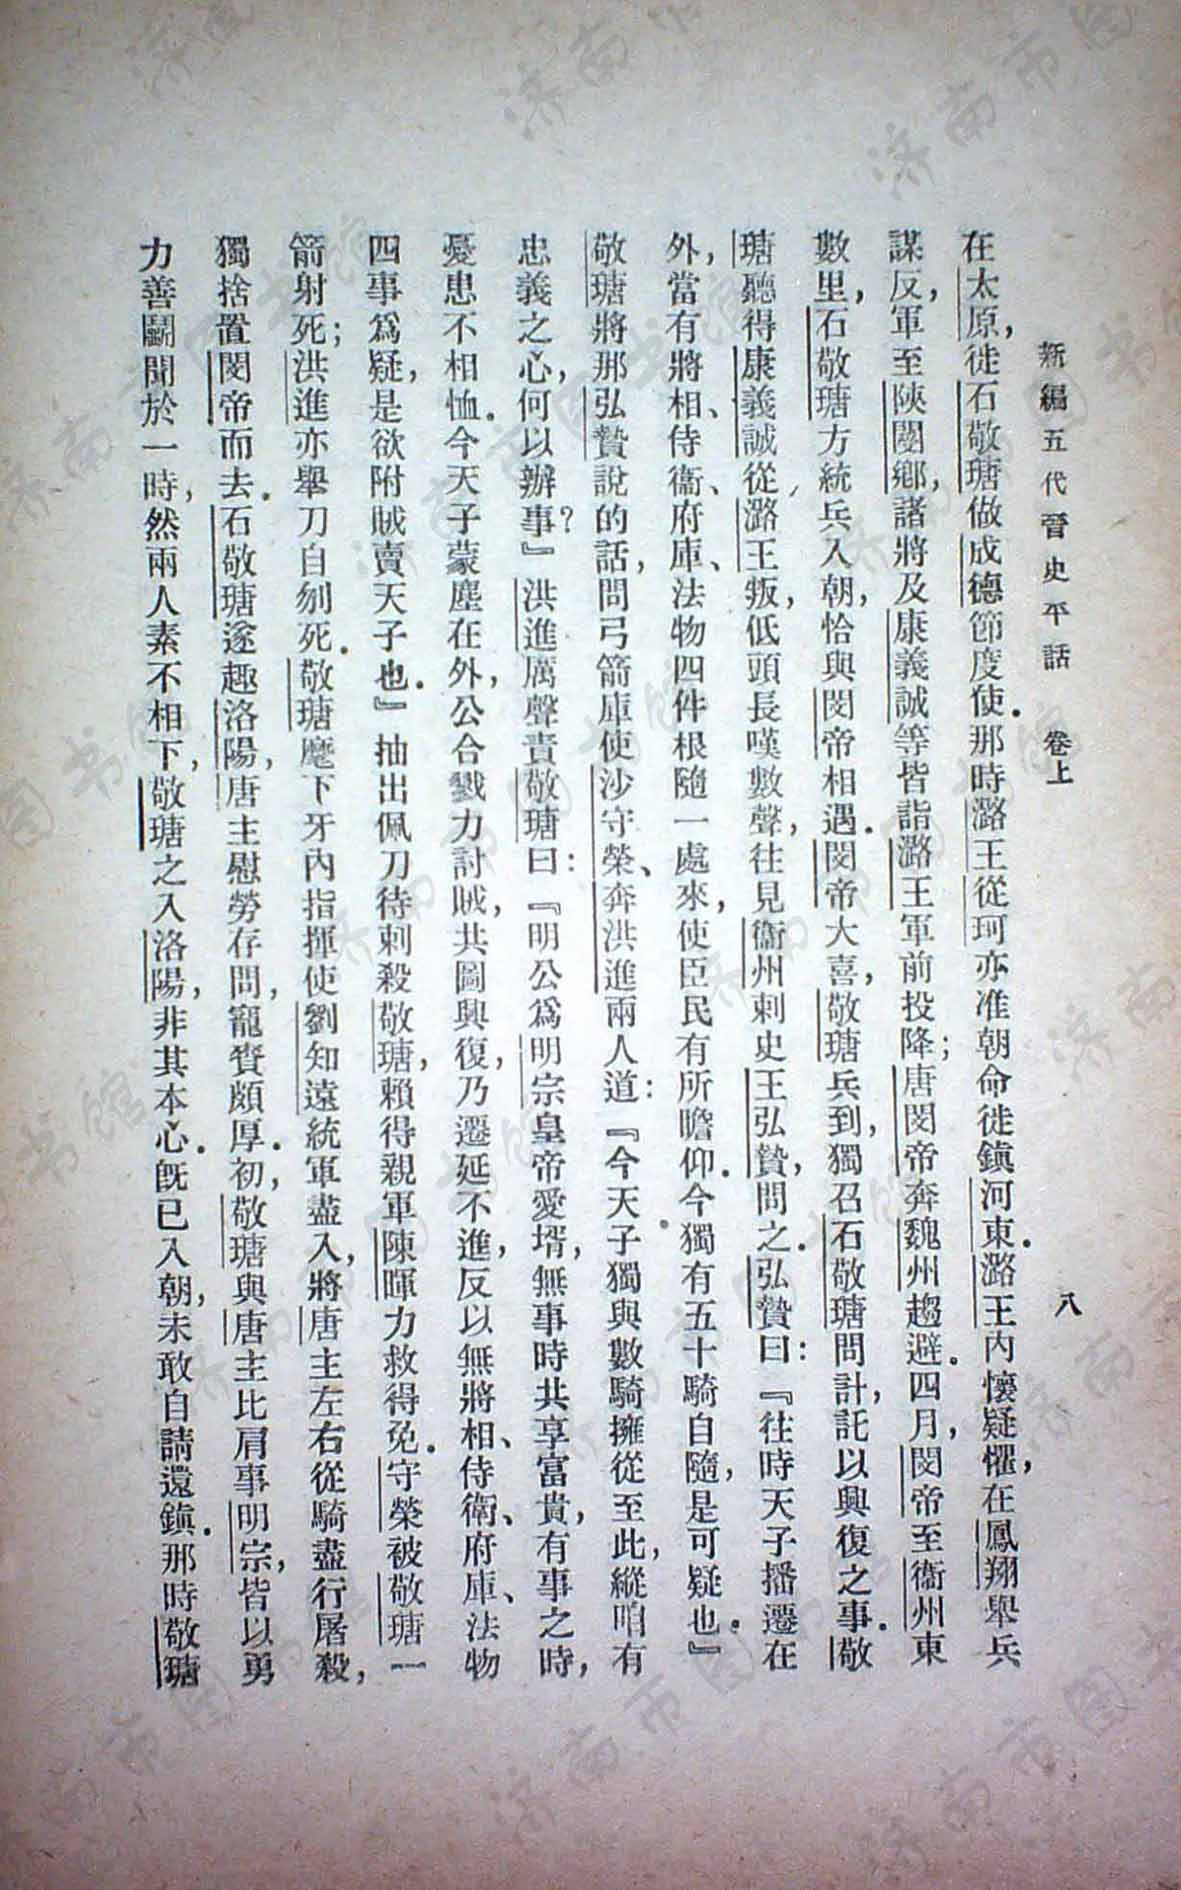 新編五代晉史平話 卷上 八
在太原，徙石敬瑭做成德節度使．那時潞王從珂亦准朝命徙鎮河東．潞王內懷疑懼，在鳳翔舉兵
謀反，軍至陝閿鄉，諸將及康義誠等皆詣潞王軍前投降；唐閔帝奔魏州趨避．四月，閔帝至衞州東
數里，石敬瑭方統兵入朝，恰與閔帝相遇．閔帝大喜，敬瑭兵到，獨召石敬瑭問計，託以興復之事．敬
瑭聽得康義誠從潞王叛，低頭長嘆數聲，往見衞州刺史王弘贄，問之．弘贄曰：『往時天子播遷在
外，當有將相、侍衞、府庫、法物四件根隨一處來，使臣民有所瞻仰．今獨有五十騎自隨，是可疑也．』
敬瑭將那弘贄說的話，問弓箭庫使沙守榮、奔洪進兩人道：『今天子獨與數騎擁從至此，縱咱有
忠義之心，何以辦事？』洪進厲聲責敬瑭曰：『明公爲明宗皇帝愛壻，無事時共享富貴，有事之時，
憂患不相恤．今天子蒙塵在外，公合戮力討賊，共圖興復，乃遷延不進，反以無將相、侍衛、府庫、法物
四事爲疑，是欲附賊賣天子也．』抽出佩刀待刺殺敬瑭，賴得親軍陳暉力救得免．守榮被敬瑭一
箭射死；洪進亦舉刀自刎死．敬瑭麾下牙內指揮使劉知遠統軍盡入，將唐主左右從騎盡行屠殺，
獨捨置閔帝而去．石敬瑭遂趣洛陽，唐主慰勞存問，寵賚頗厚．初，敬瑭與唐主比肩事明宗，皆以勇
力善鬭聞於一時，然兩人素不相下，敬瑭之入洛陽，非其本心．旣已入朝，未敢自請還鎮．那時敬瑭